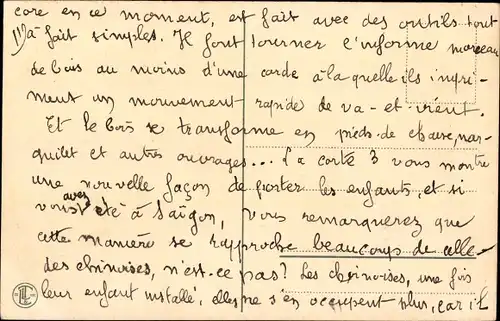 core en ce moment, est fait avec des outils tout
à fait simples. Il font tourner l'informe morceau
de bois au moins d'une corde à laquelle ils impri-
ment un mouvement rapide de va-et-vient.
Et le bois se transforme en pieds de chaise, nar-
quilet et autres ouvrages... La carte 3 vous montre
une nouvelle façon de porter les enfants, et si
vous avez été à Saïgon, vous remarquerez que
cette manière se rapproche beaucoup de celle
des chinoises, n'est-ce pas? Les chinoises, une fois
leur enfant installé, elles ne s'en occupent plus, car il